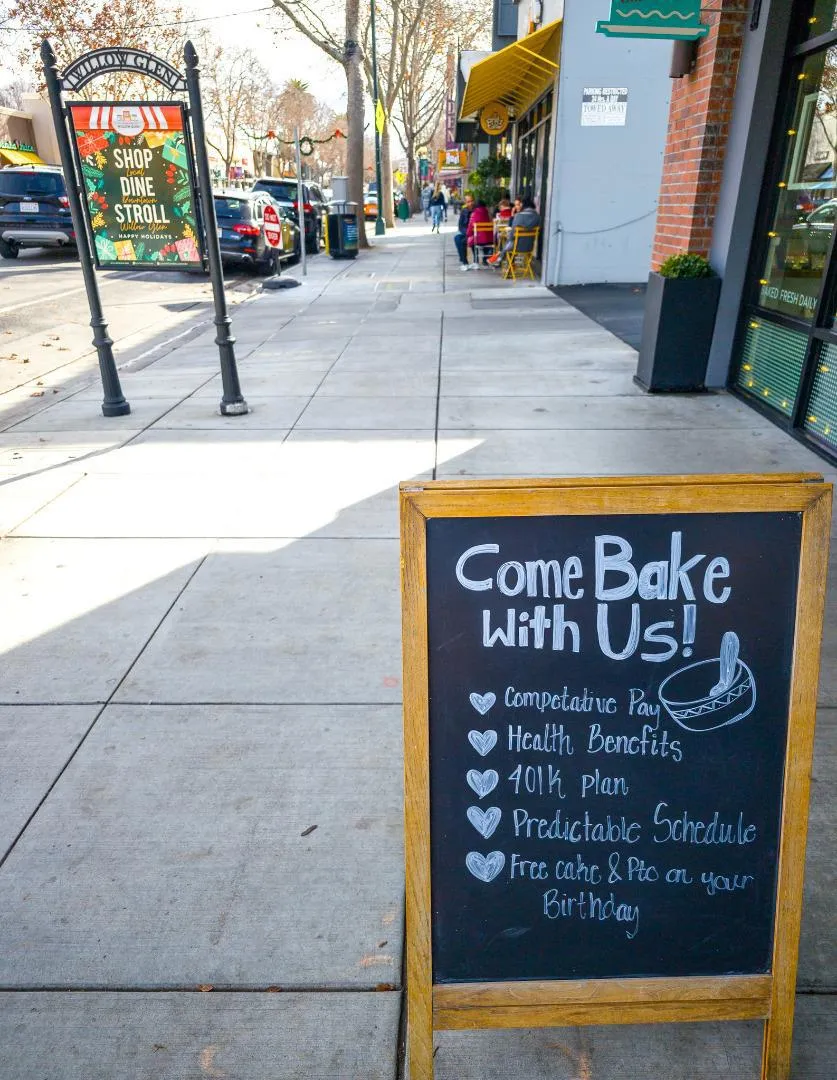 WILLOW GLEN
SHOP
Local
DINE
downtown
STROLL
Willow Glen
HAPPY HOLIDAYS
DO NOT
ENTER
PARKING RESTRICTED
TOWED AWAY
BAKED FRESH DAILY
Come Bake
With Us!
Competative Pay
Health Benefits
401K plan
Predictable Schedule
Free cake & Pto on your
Birthday